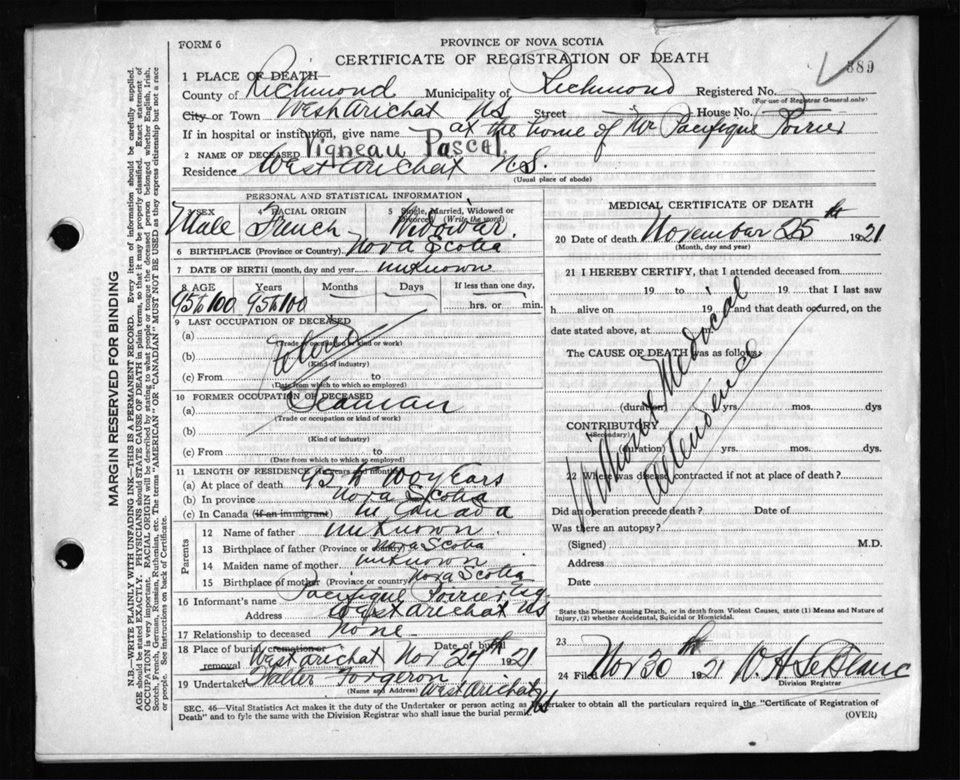 FORM 6
PROVINCE OF NOVA SCOTIA
CERTIFICATE OF REGISTRATION OF DEATH
389
1 PLACE OF DEATH—
County of Richmond Municipality of Richmond Registered No.
(For use of Registrar General only)
City or Town West Arichat NS Street House No.
If in hospital or institution, give name at the home of Mr Pacifique Poirier
2 NAME OF DECEASED Vigneau Pascal
Residence West Arichat N.S.
(Usual place of abode)
PERSONAL AND STATISTICAL INFORMATION
3 SEX 4 RACIAL ORIGIN 5 Single, Married, Widowed or Divorced (Write the word)
Male French Widowar.
6 BIRTHPLACE (Province or Country) Nova Scotia
7 DATE OF BIRTH (month, day and year) unknown
8 AGE Years Months Days If less than one day,
95 to 100 95 to 100 hrs. or min.
9 LAST OCCUPATION OF DECEASED
(a)
(Trade or occupation or kind of work)
(b)
(Kind of industry)
(c) From to
(Date from which to which so employed)
10 FORMER OCCUPATION OF DECEASED
(a) Seaman
(Trade or occupation or kind of work)
(b)
(Kind of industry)
(c) From to
(Date from which to which so employed)
11 LENGTH OF RESIDENCE (in years and months)
(a) At place of death 95 to 100 years
(b) In province Nova Scotia
(c) In Canada (if an immigrant) in Canada
Parents
12 Name of father unknown
13 Birthplace of father (Province or country) Nova Scotia
14 Maiden name of mother unknown
15 Birthplace of mother (Province or country) Nova Scotia
16 Informant's name Pacifique Poirier
Address West Arichat NS
17 Relationship to deceased none
18 Place of burial cremation or removal West Arichat Date of burial Nov 27th 1921
19 Undertaker Walter Forgeron West Arichat NS
(Name and Address)
MEDICAL CERTIFICATE OF DEATH
20 Date of death November 25th 1921
(Month, day and year)
21 I HEREBY CERTIFY, that I attended deceased from
19 to 19 that I last saw
h alive on 19 and that death occurred, on the
date stated above, at
The CAUSE OF DEATH was as follows:
Without Medical
attendence
(duration) yrs. mos. dys
CONTRIBUTORY
(Secondary)
(duration) yrs. mos. dys
22 Where was disease contracted if not at place of death?
Did an operation precede death? Date of
Was there an autopsy?
(Signed) M.D.
Address
Date
State the Disease causing Death, or in death from Violent Causes, state (1) Means and Nature of
Injury, (2) whether Accidental, Suicidal or Homicidal.
23
24 Filed Nov 30th 1921 LeBlanc
Division Registrar
SEC. 46—Vital Statistics Act makes it the duty of the Undertaker or person acting as Undertaker to obtain all the particulars required in the "Certificate of Registration of
Death" and to fyle the same with the Division Registrar who shall issue the burial permit.
(OVER)
MARGIN RESERVED FOR BINDING
N.B.—WRITE PLAINLY WITH UNFADING INK—THIS IS A PERMANENT RECORD. Every item of information should be carefully supplied.
AGE should be stated EXACTLY. PHYSICIANS should STATE CAUSE OF DEATH in plain terms, so that it may be properly classified. Exact statement of
OCCUPATION is very important. RACIAL ORIGIN will be described by stating to what people or tongue the deceased person belonged whether English, Irish,
Scotch, French, German, Russian, Ruthenian, etc. The terms "AMERICAN" or "CANADIAN" MUST NOT BE USED as they express citizenship but not a race
or people. See instructions on back of Certificate.